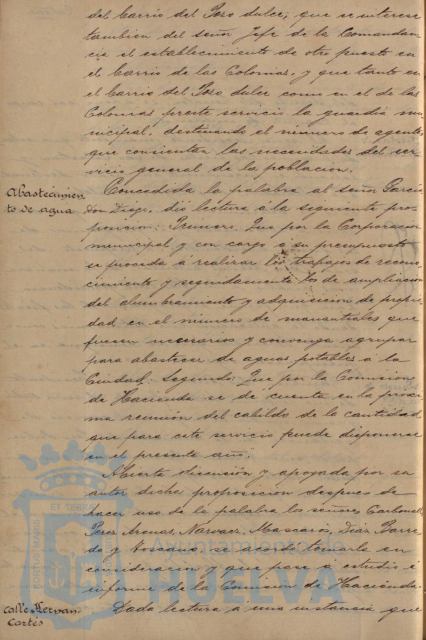 del barrio del Pozo dulce; que se interese
tambien del señor Jefe de la Comandan-
cia el establecimiento de otro puesto en
el barrio de las Colonias, y que tanto en
el barrio del Pozo dulce como en el de las
Colonias preste servicio la guardia mu-
nicipal, destinando el número de agentes
que consientan las necesidades del ser-
vicio general de la poblacion.
Abastecimien-
to de agua
Concedida la palabra al señor García
Don Diego, dió lectura á la siguiente pro-
posicion: Primero. Que por la Corporacion
municipal y con cargo a su presupuesto
se proceda á realizar los trabajos de recono-
cimiento y seguidamente los de ampliacion
del alumbramiento y adquisicion de propie-
dad en el número de manantiales que
fuesen necesarios y convenga agrupar
para abastecer de aguas potables á la
Ciudad. Segundo: Que por la Comision
de Hacienda se de cuenta en la próxi-
ma reunion del cabildo de la cantidad
que para este servicio puede disponerse
en el presente año.
Abierta discusion y apoyada por su
autor dicha proposicion despues de
hacer uso de la palabra los señores Carbonell
Perez Arenas, Narvaez, Mascarós, Diaz Barre-
do y Toscano, se acordó tomarla en
consideracion y que pase a estudio é
informe de la Comision de Hacienda.
calle Hernan
Cortés
Dada lectura a una instancia que
PORTUS MARIS
ET TERRAE
Ayuntamiento de
HUELVA